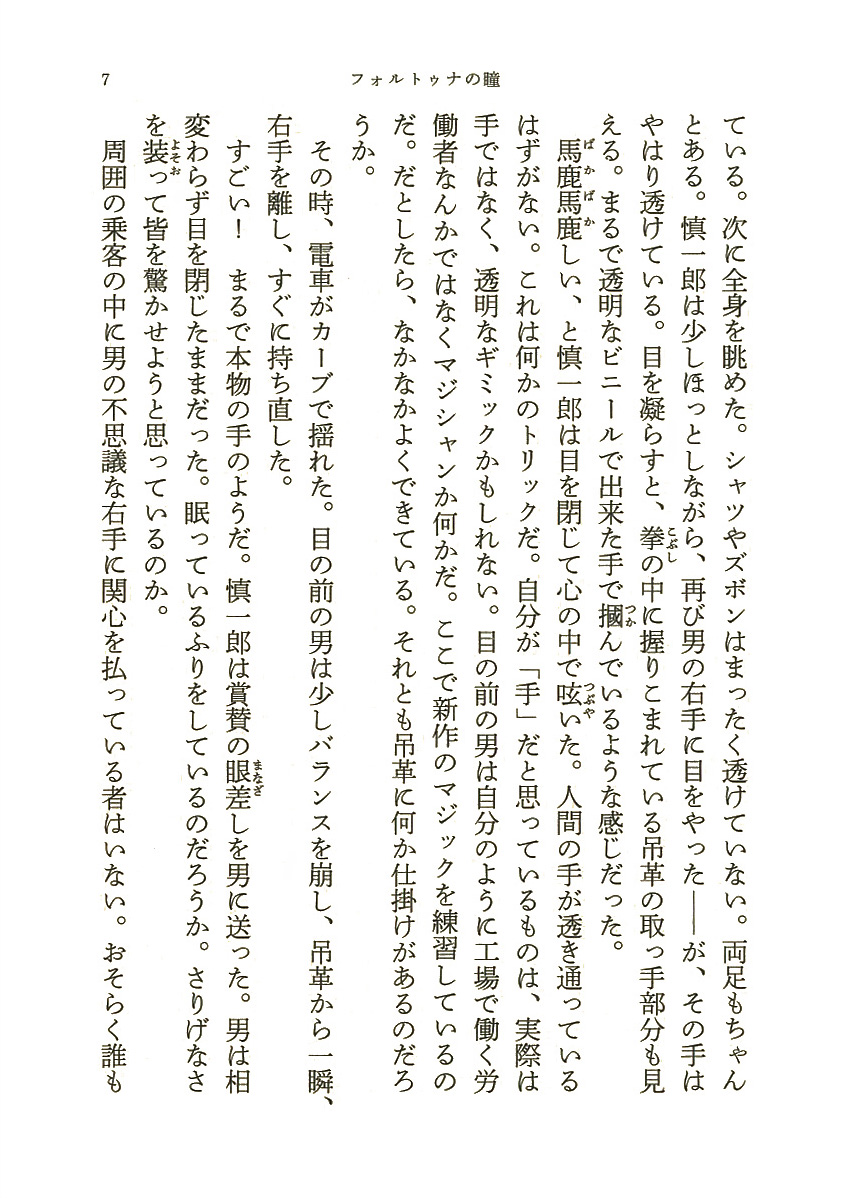 7
フォルトゥナの瞳
ている。次に全身を眺めた。シャツやズボンはまったく透けていない。両足もちゃん
とある。慎一郎は少しほっとしながら、再び男の右手に目をやった——が、その手は
やはり透けている。目を凝らすと、拳の中に握りこまれている吊革の取っ手部分も見
える。まるで透明なビニールで出来た手で摑んでいるような感じだった。
馬鹿馬鹿しい、と慎一郎は目を閉じて心の中で呟いた。人間の手が透き通っている
はずがない。これは何かのトリックだ。自分が「手」だと思っているものは、実際は
手ではなく、透明なギミックかもしれない。目の前の男は自分のように工場で働く労
働者なんかではなくマジシャンか何かだ。ここで新作のマジックを練習しているの
だ。だとしたら、なかなかよくできている。それとも吊革に何か仕掛けがあるのだろ
うか。
その時、電車がカーブで揺れた。目の前の男は少しバランスを崩し、吊革から一瞬、
右手を離し、すぐに持ち直した。
すごい！　まるで本物の手のようだ。慎一郎は賞賛の眼差しを男に送った。男は相
変わらず目を閉じたままだった。眠っているふりをしているのだろうか。さりげなさ
を装って皆を驚かせようと思っているのか。
周囲の乗客の中に男の不思議な右手に関心を払っている者はいない。おそらく誰も